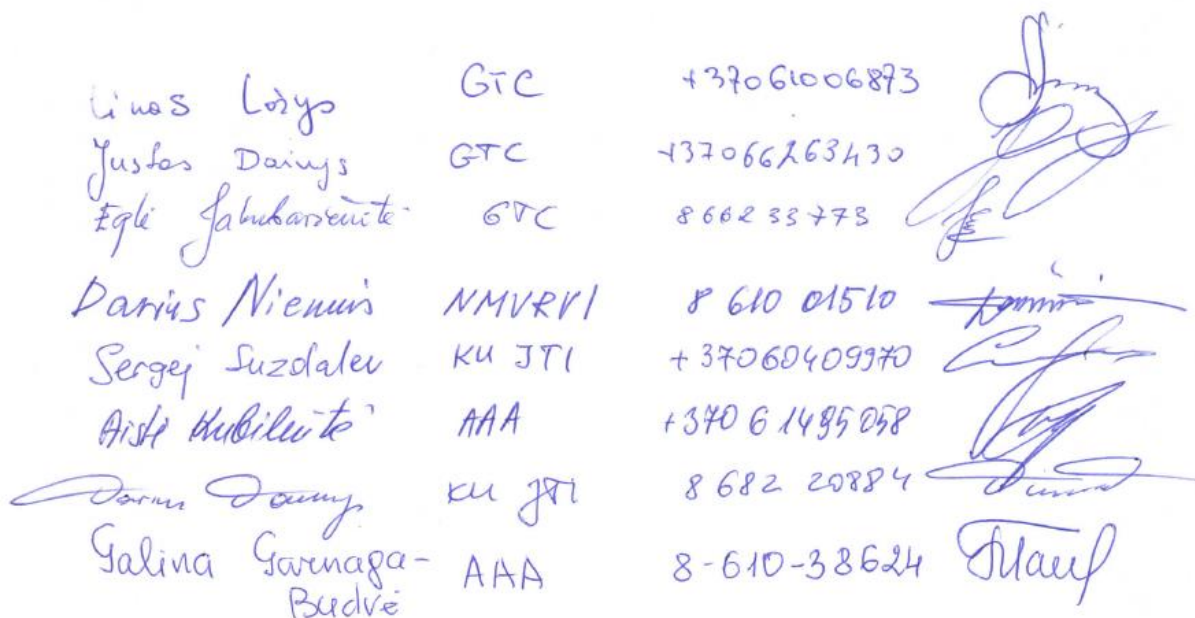 Linas Ložys GTC +37061006873
Justas Dainys GTC +37066263430
Eglė Jakubavičiūtė GTC 8 662 33 773
Darius Nienius NMVRVI 8 610 01510
Sergej Suzdalev KU JTI +37060409970
Aistė Kubiliūtė AAA +370 61495058
Darius Daunys KU JTI 8 682 20884
Galina Garnaga-
Budvė AAA 8-610-38624